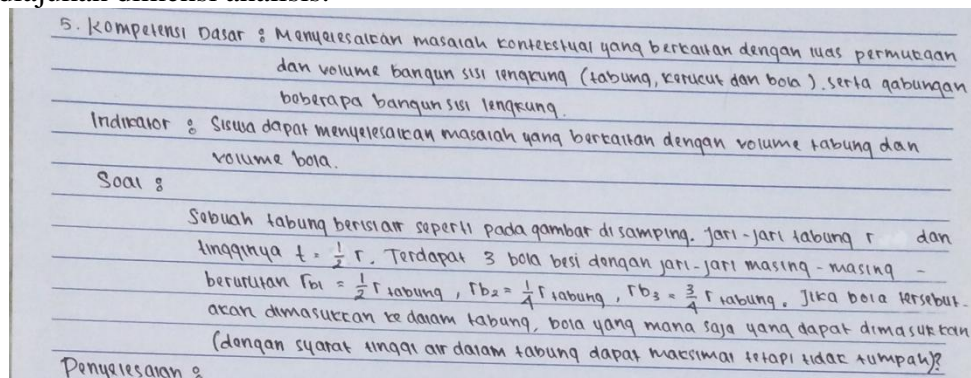 5. Kompetensi Dasar : Menyelesaikan masalah kontekstual yang berkaitan dengan luas permukaan
dan volume bangun sisi lengkung (tabung, kerucut dan bola). serta gabungan
beberapa bangun sisi lengkung.
Indikator : Siswa dapat menyelesaikan masalah yang berkaitan dengan volume tabung dan
volume bola.
Soal :
Sebuah tabung berisi air seperti pada gambar di samping. Jari-jari tabung r dan
tingginya t = 1/2 r. Terdapat 3 bola besi dengan jari-jari masing-masing -
berurutan rb1 = 1/2 r tabung, rb2 = 1/4 r tabung, rb3 = 3/4 r tabung. Jika bola tersebut.
akan dimasukkan ke dalam tabung, bola yang mana saja yang dapat dimasukkan
(dengan syarat tinggi air dalam tabung dapat maksimal tetapi tidak tumpah)?
Penyelesaian :